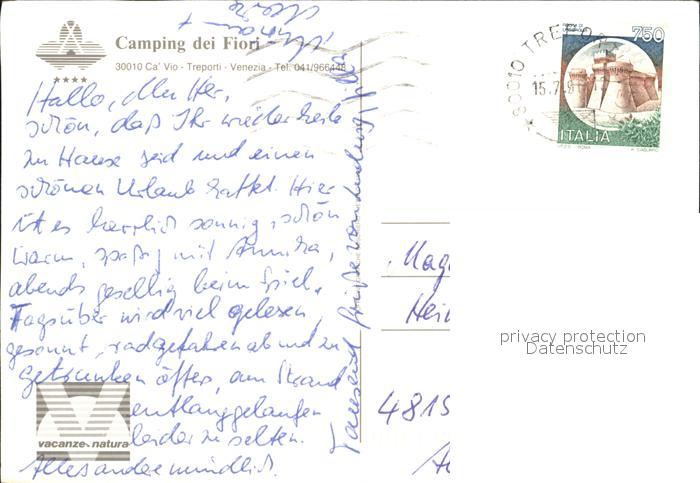 Camping dei Fiori
30010 Ca' Vio - Treporti - Venezia - Tel. 041/966448
Hallo, Ihr Vier,
schön, daß Ihr wieder heile
zu Hause seid und einen
schönen Urlaub hattet. Hier
ist es herrlich sonnig, schön
warm, spaßig mit Annika,
abends gesellig beim Spiel.
Tagsüber wird viel gelesen,
gesonnt, radgefahren ab und zu
Getrunken öfters, am Strand
entlanggelaufen
leider zu selten.
Alles andere mündlich.
Tausend Grüße von
vacanze natura
30010 TREPORTI
15.7.9
750
ITALIA
Mag
Hein
4815
privacy protection
Datenschutz